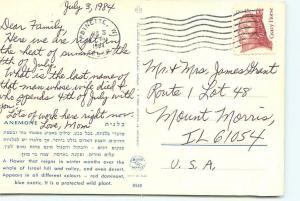 July 3, 1984
Dear Family,
Here we are right in
the heat of summer - the
4th of July
What is the last name of
that man whose wife died &
who spends 4th of July with
you.
Lots of work here right now.
Love, Mom
ANEMONE כלנית
A flower that reigns in winter months over the
whole of Israel hill and valley, and even desert.
Appears in all different colours - red dominant,
blue exotic. It is a protected wild plant.
8560
Crazy Horse
Mr. & Mrs. James Grant
Route 1 Lot 48
Mount Morris,
IL 61054
U.S.A.